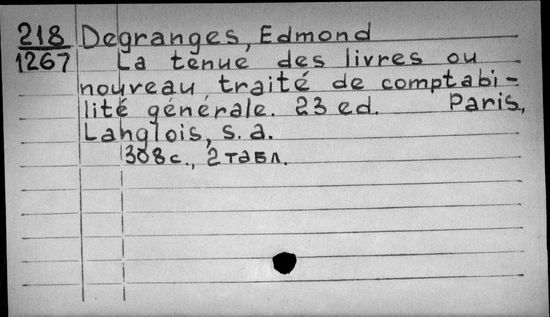 218 Degranges, Edmond
1267 La tenue des livres ou
nouveau traité de comptabi-
lité générale. 23 ed. Paris,
Langlois, s. a.
308 с., 2 табл.